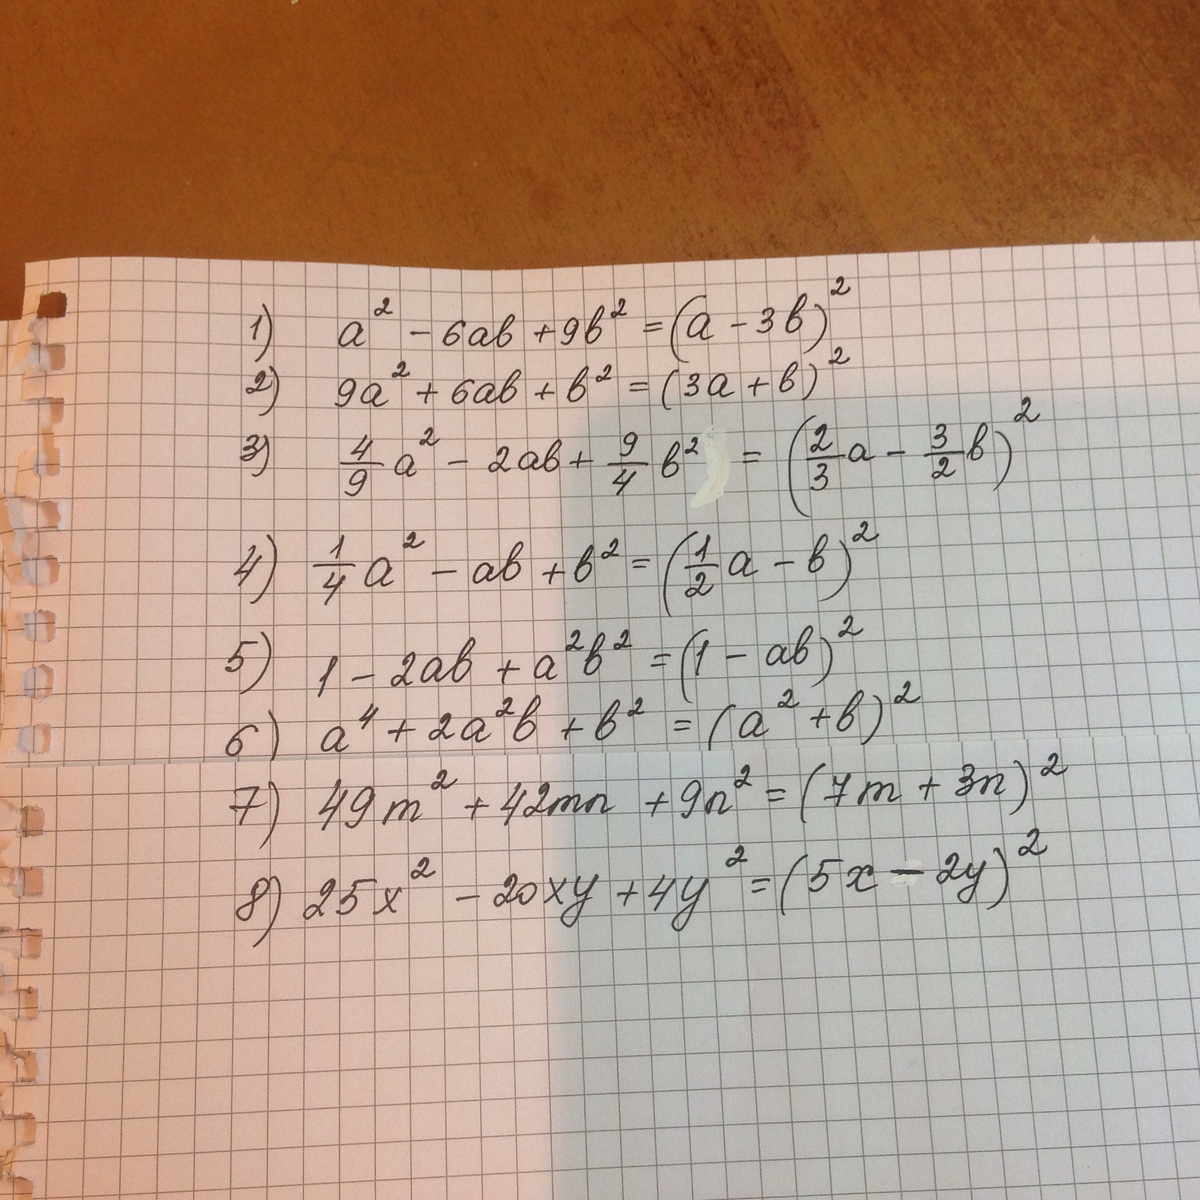 1) a² - 6ab + 9b² = (a - 3b)²
2) 9a² + 6ab + b² = (3a + b)²
3) 4/9 a² - 2ab + 9/4 b² = (2/3 a - 3/2 b)²
4) 1/4 a² - ab + b² = (1/2 a - b)²
5) 1 - 2ab + a²b² = (1 - ab)²
6) a⁴ + 2a²b + b² = (a² + b)²
7) 49m² + 42mn + 9n² = (7m + 3n)²
8) 25x² - 20xy + 4y² = (5x - 2y)²